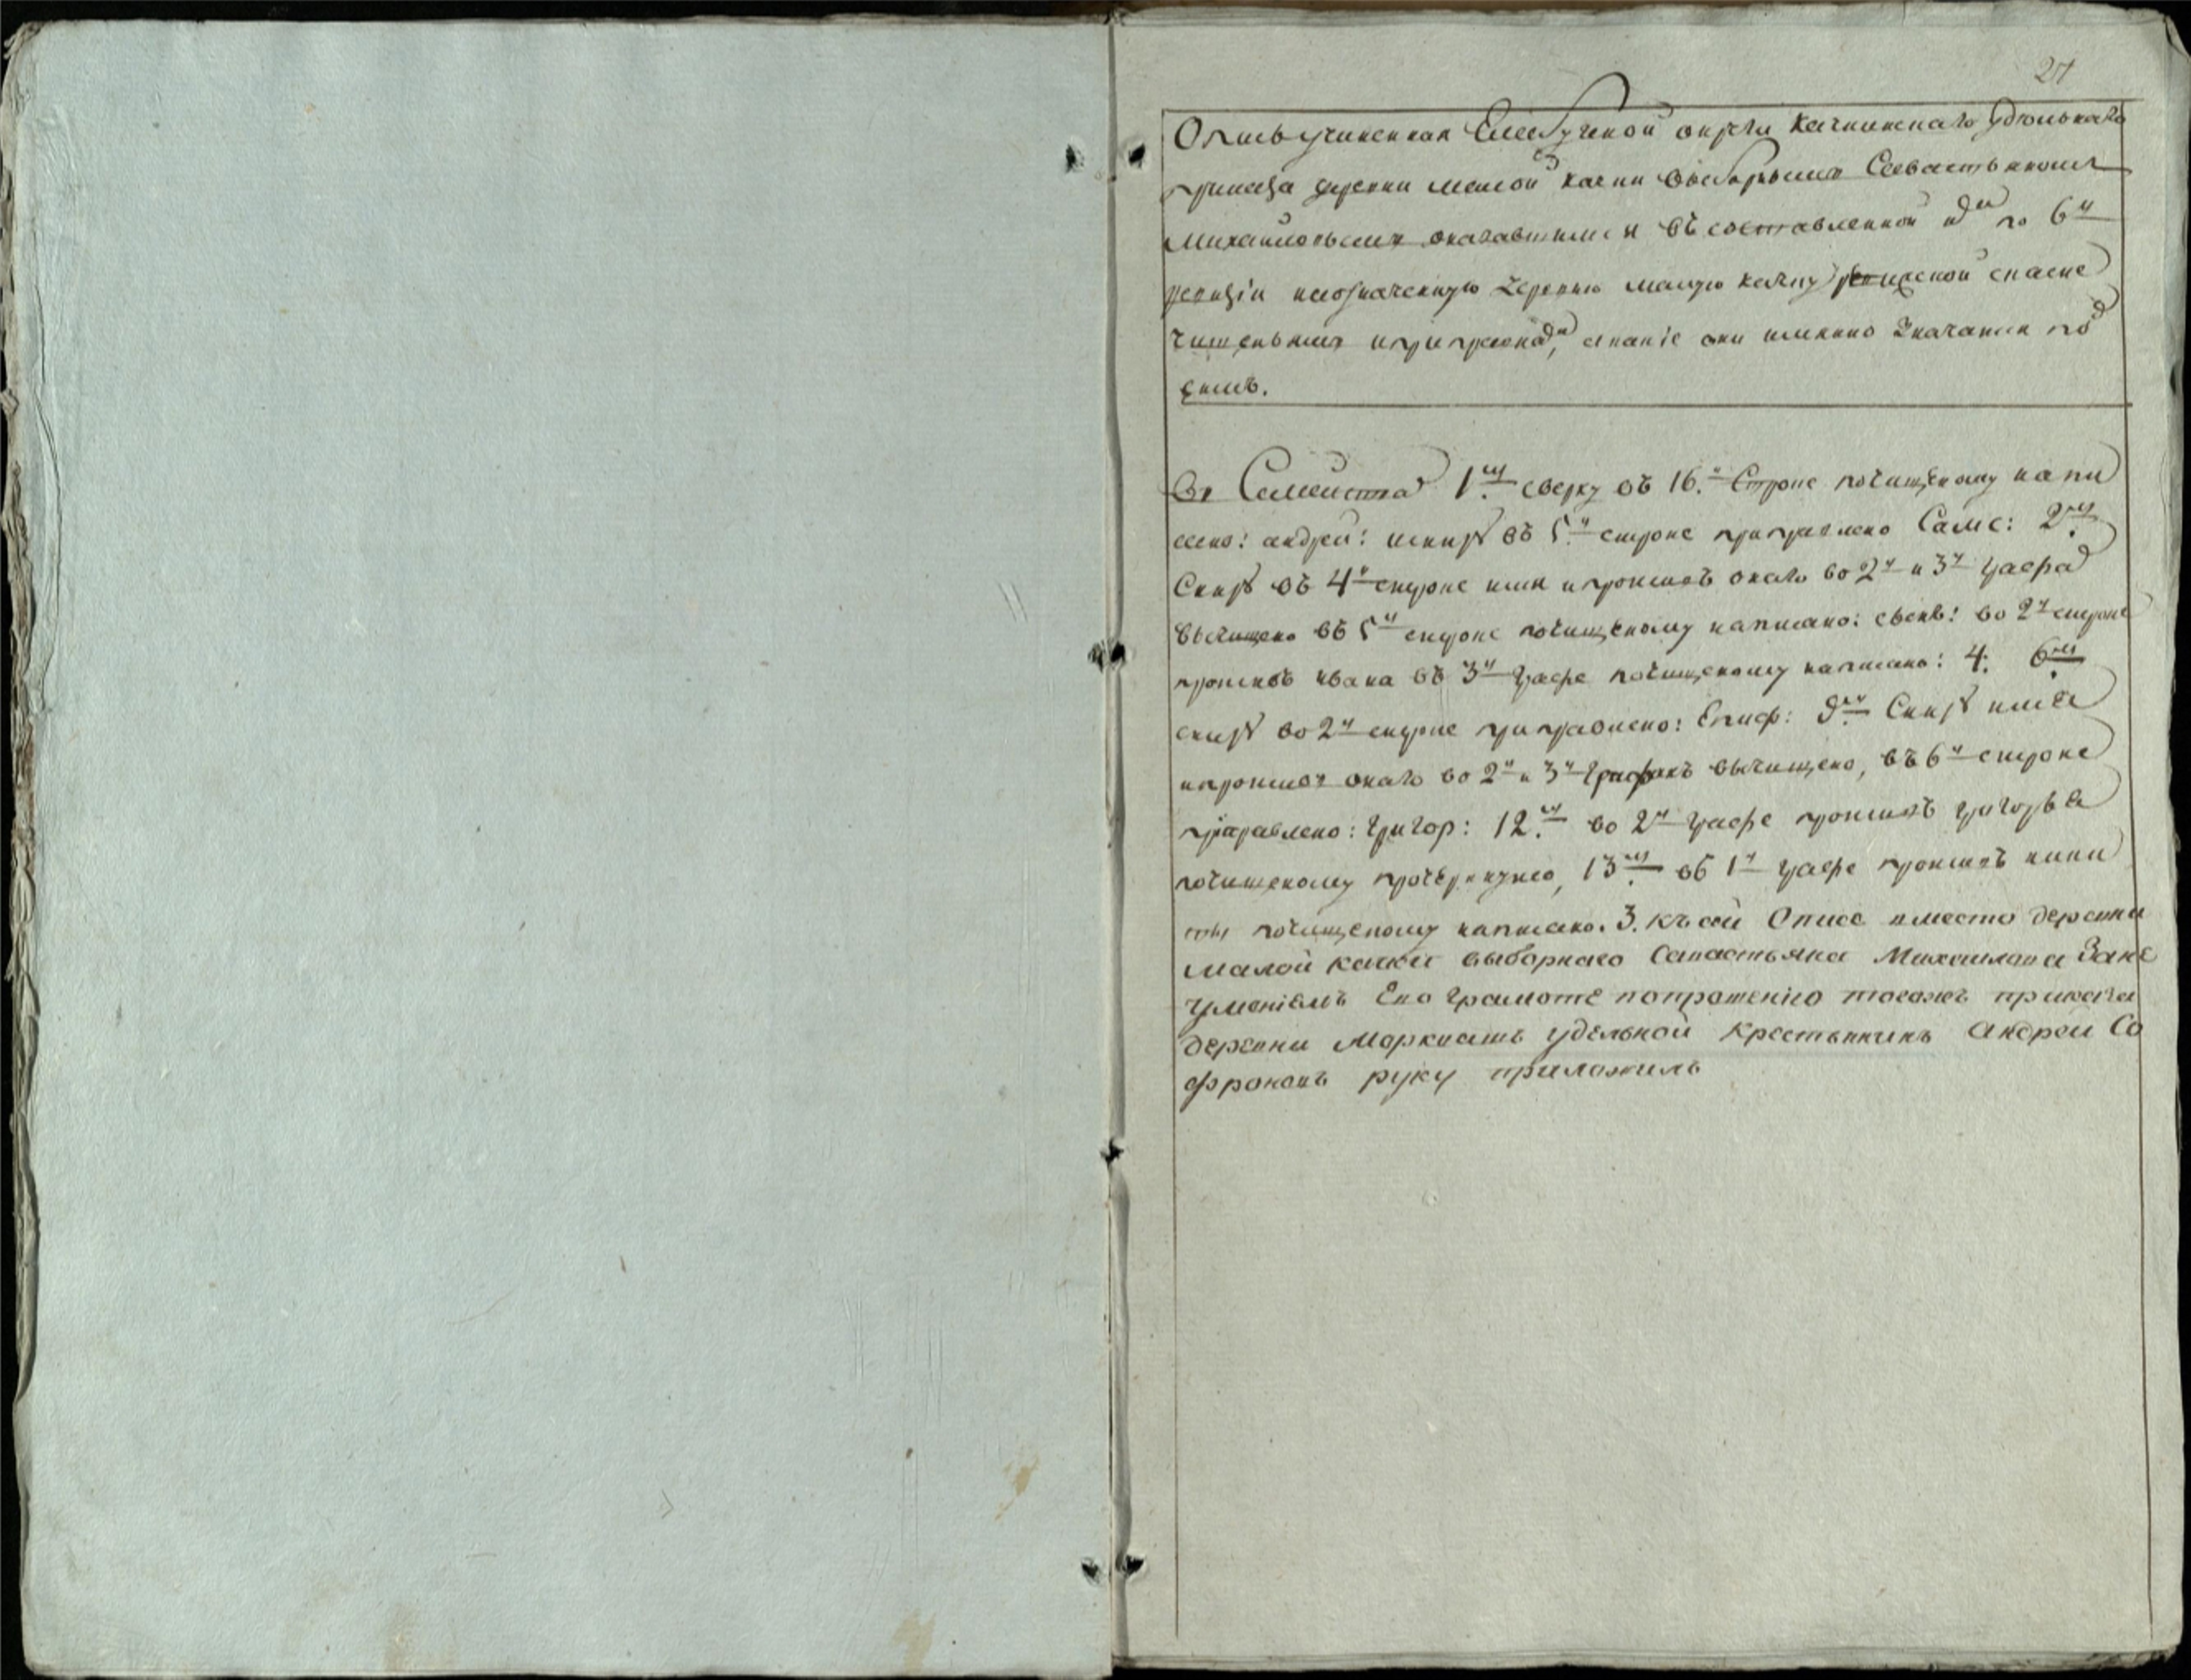 Опись учиненная Елабугской округи Качкинскаго удѣльнаго
приказа деревни малой качки выборнымъ Севастьяномъ
Михайловымъ оказавшимся въ составленной имъ по 6й
ревизіи на означенную деревню малую качку ревизской скаске
чищеньямъ и приправкамъ, а какіе они именно значатся под
симъ.
Въ Семействахъ 1мъ сверху въ 16.й Строке почищеному напи
сано: андреи: исниз въ 5й строке приправлено Самс: 2мъ
Сниз въ 4й строке имя и противъ онаго во 2й и 3й графах
вычищено въ 5й строке почищеному написано: во 2й строке
противъ ивана въ 3й графе почищеному написано: 4. 6мъ
сниз во 2й строке приправлено: Епиф: 9мъ Сниз имя
и противъ онаго во 2й и 3й графахъ вычищено, въ 6й строке
приправлено: Григор: 12.мъ во 2й графе противъ григорья
почищеному прочеркнуто, 13мъ въ 1й графе противъ ники
ты почищеному написано. 3. къ сей Описе вместо деревни
малой качки выборнаго Савастьяна Михаилова Зане
умениемъ Ево грамоте попрошению тогожъ приказа
деревни Маркваш удельной крестьянинъ андреи Со
фроновъ руку приложилъ